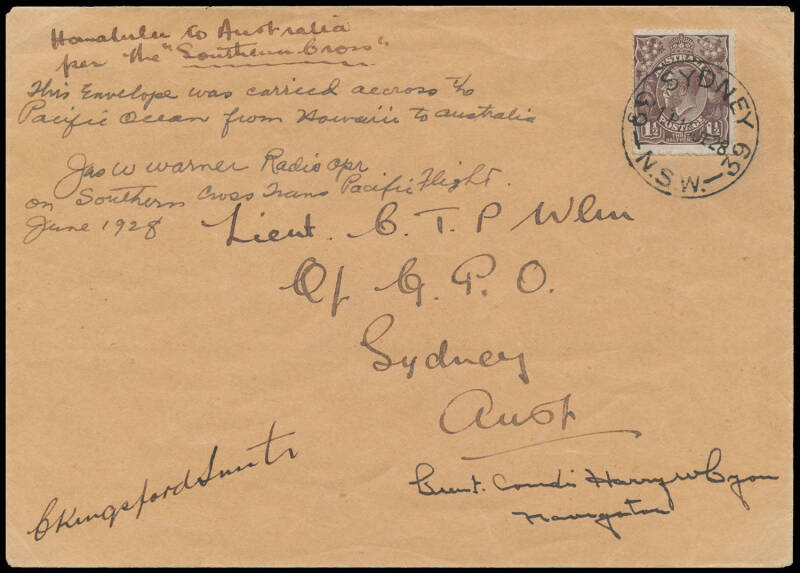 Honolulu to Australia
per the "Southern Cross"
This Envelope was carried accross the
Pacific Ocean from Howaiii to australia
Jas W Warner Radio opr
on Southern Cross Trans Pacific Flight.
June 1928
Lieut. C. T. P Ulm
G. P. O.
Sydney
Aust
CKingsfordSmith
Lieut. Comdr Harry W Lyon
Navigator
AUSTRALIA
1½ POSTAGE 1½
THREE HALFPENCE
SYDNEY
28
N.S.W.
39